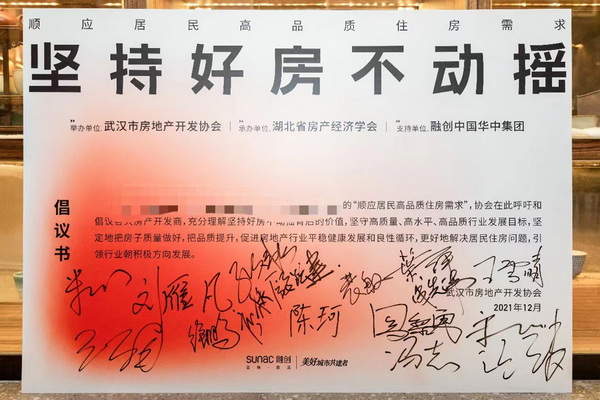 顺应居民高品质住房需求
坚持好房不动摇
举办单位：武汉市房地产开发协会 | 承办单位：湖北省房产经济学会 | 支持单位：融创中国华中集团
倡议书
的“顺应居民高品质住房需求”，协会在此呼吁和
倡议各大房产开发商，充分理解坚持好房不动摇背后的价值，坚守高质量、高水平、高品质行业发展目标，坚
定地把房子质量做好，把品质提升，促进房地产行业平稳健康发展和良性循环，更好地解决居民住房问题，引
领行业朝积极方向发展。
刘雁
陈珂
冯志
武汉市房地产开发协会
2021年12月
SUNAC 融创
美好城市共建者